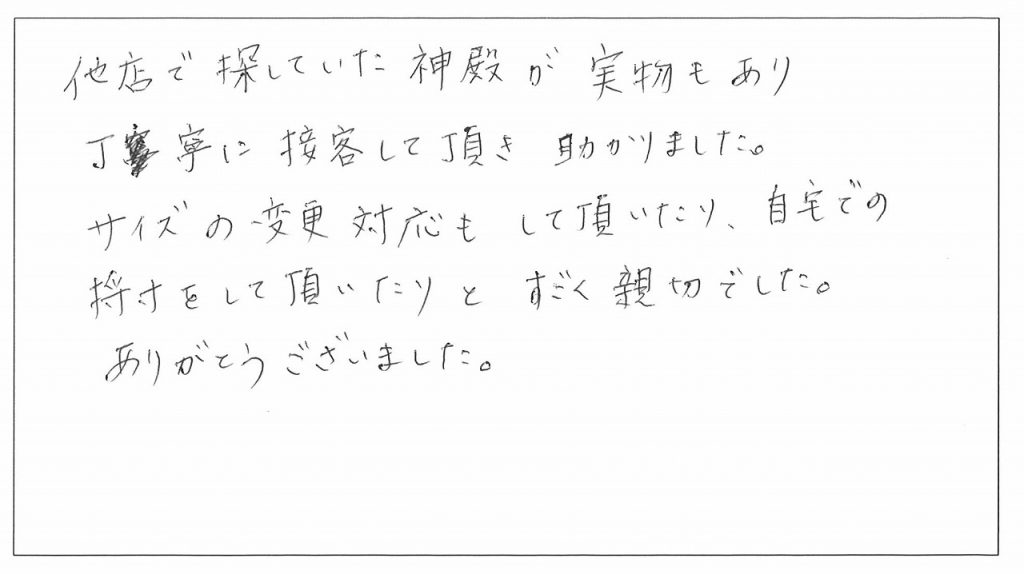 他店で探していた神殿が実物もあり
丁寧に接客して頂き助かりました。
サイズの変更対応もして頂いたり、自宅での
採寸をして頂いたりとすごく親切でした。
ありがとうございました。